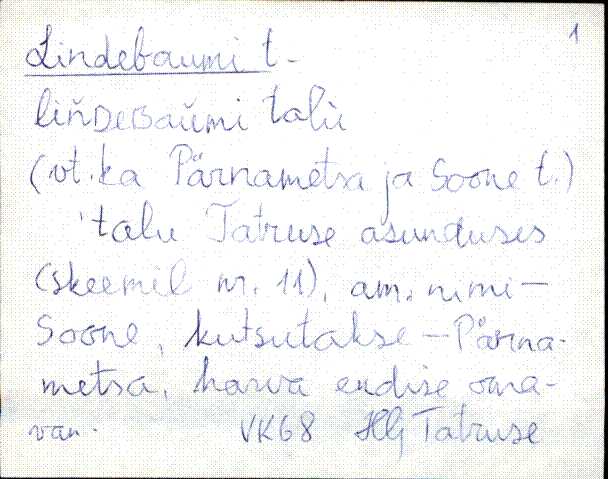 1
Lindebaumi t.
liňDEBaŭmi talu
(vt. ka Pärnametsa ja Soone t.)
talu Tatruse asunduses
(skeemil nr. 11), am. nimi -
Soone, kutsutakse - Pärna-
metsa, harva endise oma-
van. VK68 HLj Tatruse